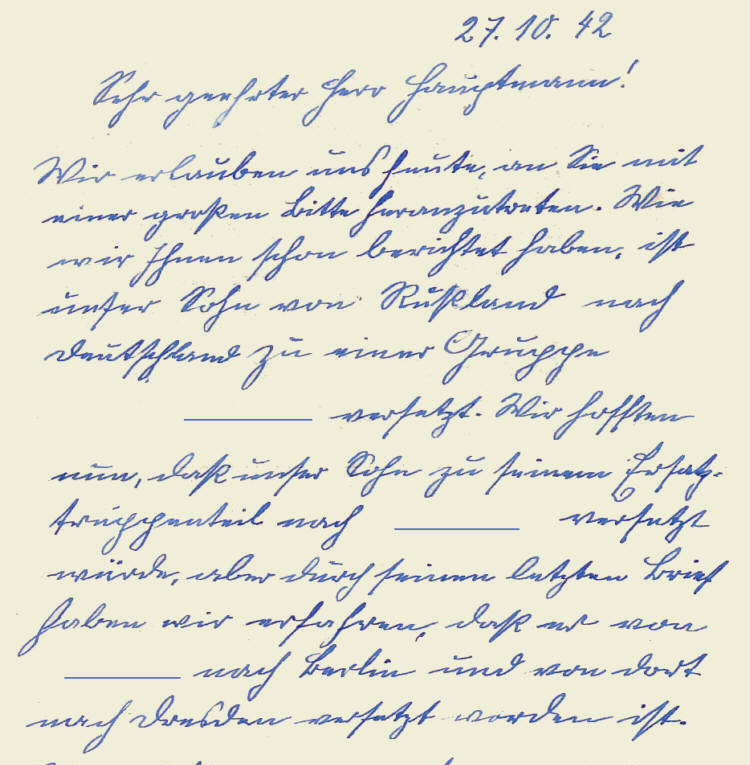 27. 10. 42
Sehr geehrter Herr Hauptmann!
Wir erlauben uns heute, an Sie mit
einer großen Bitte heranzutreten. Wie
wir Ihnen schon berichtet haben, ist
unser Sohn von Rußland nach
Deutschland zu einer Gruppe
versetzt. Wir hofften
nun, daß unser Sohn zu seinem Ersatz-
truppenteil nach versetzt
würde, aber durch seinen letzten Brief
haben wir erfahren, daß er von
nach Berlin und von dort
nach Dresden versetzt worden ist.